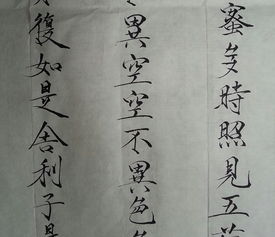 蜜多時照見五
異空空不異色
復如是舍利子是